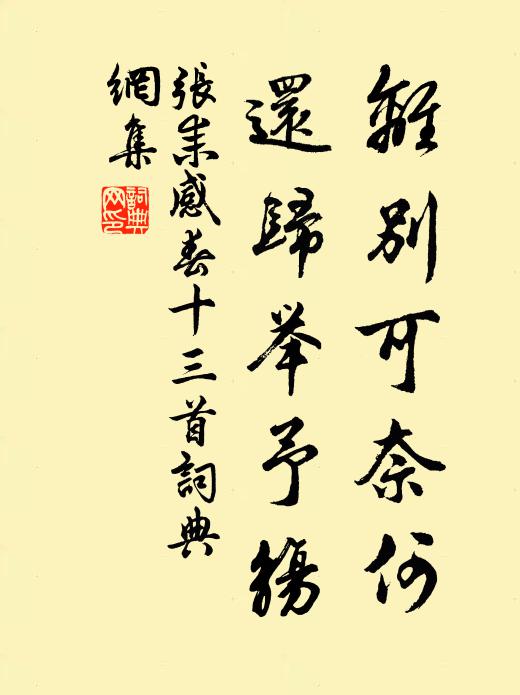 離別可奈何
還歸举予觴
張耒感春十三首詞典
網集
詞典
網印